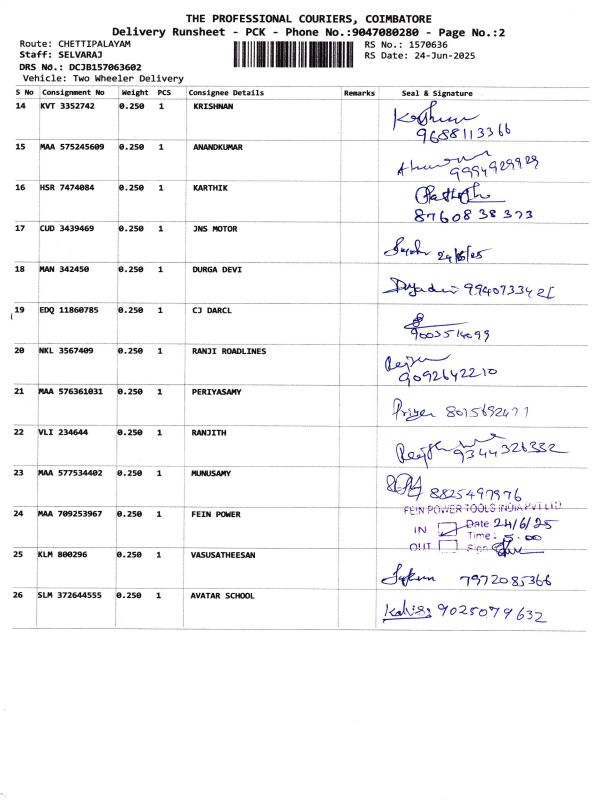 THE PROFESSIONAL COURIERS, COIMBATORE
Delivery Runsheet - PCK - Phone No.:9047080280 - Page No.:2
Route: CHETTIPALAYAM RS No.: 1570636
Staff: SELVARAJ RS Date: 24-Jun-2025
DRS No.: DCJB157063602
Vehicle: Two Wheeler Delivery
S No Consignment No Weight PCS Consignee Details Remarks Seal & Signature
14 KVT 3352742 0.250 1 KRISHNAN
9688113366
15 MAA 575245609 0.250 1 ANANDKUMAR
9994929929
16 HSR 7474084 0.250 1 KARTHIK
8760838373
17 CUD 3439469 0.250 1 JNS MOTOR
24/6/25
18 MAN 342450 0.250 1 DURGA DEVI
19 EDQ 11860785 0.250 1 CJ DARCL
9003514099
20 NKL 3567409 0.250 1 RANJI ROADLINES
9092642210
21 MAA 576361031 0.250 1 PERIYASAMY
22 VLI 234644 0.250 1 RANJITH
9344326332
23 MAA 577534402 0.250 1 MUNUSAMY
8825497976
24 MAA 709253967 0.250 1 FEIN POWER
FEIN POWER TOOLS INDIA PVT LTD
IN Date 24/6/25
Time: 5.00
OUT Sign
25 KLM 800296 0.250 1 VASUSATHEESAN
7972085366
26 SLM 372644555 0.250 1 AVATAR SCHOOL
9025079632